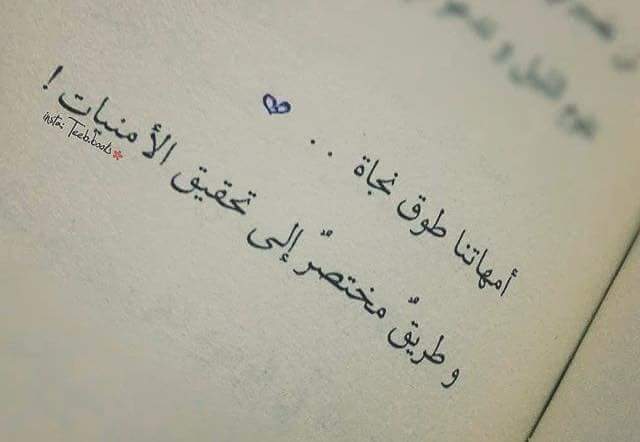 أمهاتنا طوق نجاة ..
و طريقٌ مختصرٌ إلى تحقيق الأمنيات !
insta: Teeb.books